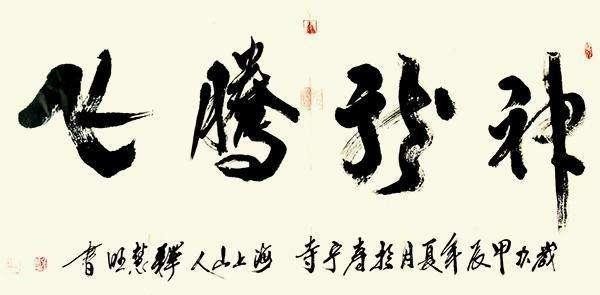 神龍騰飞
歲次甲辰年夏月於寿宁寺 海上山人釋慧旺書